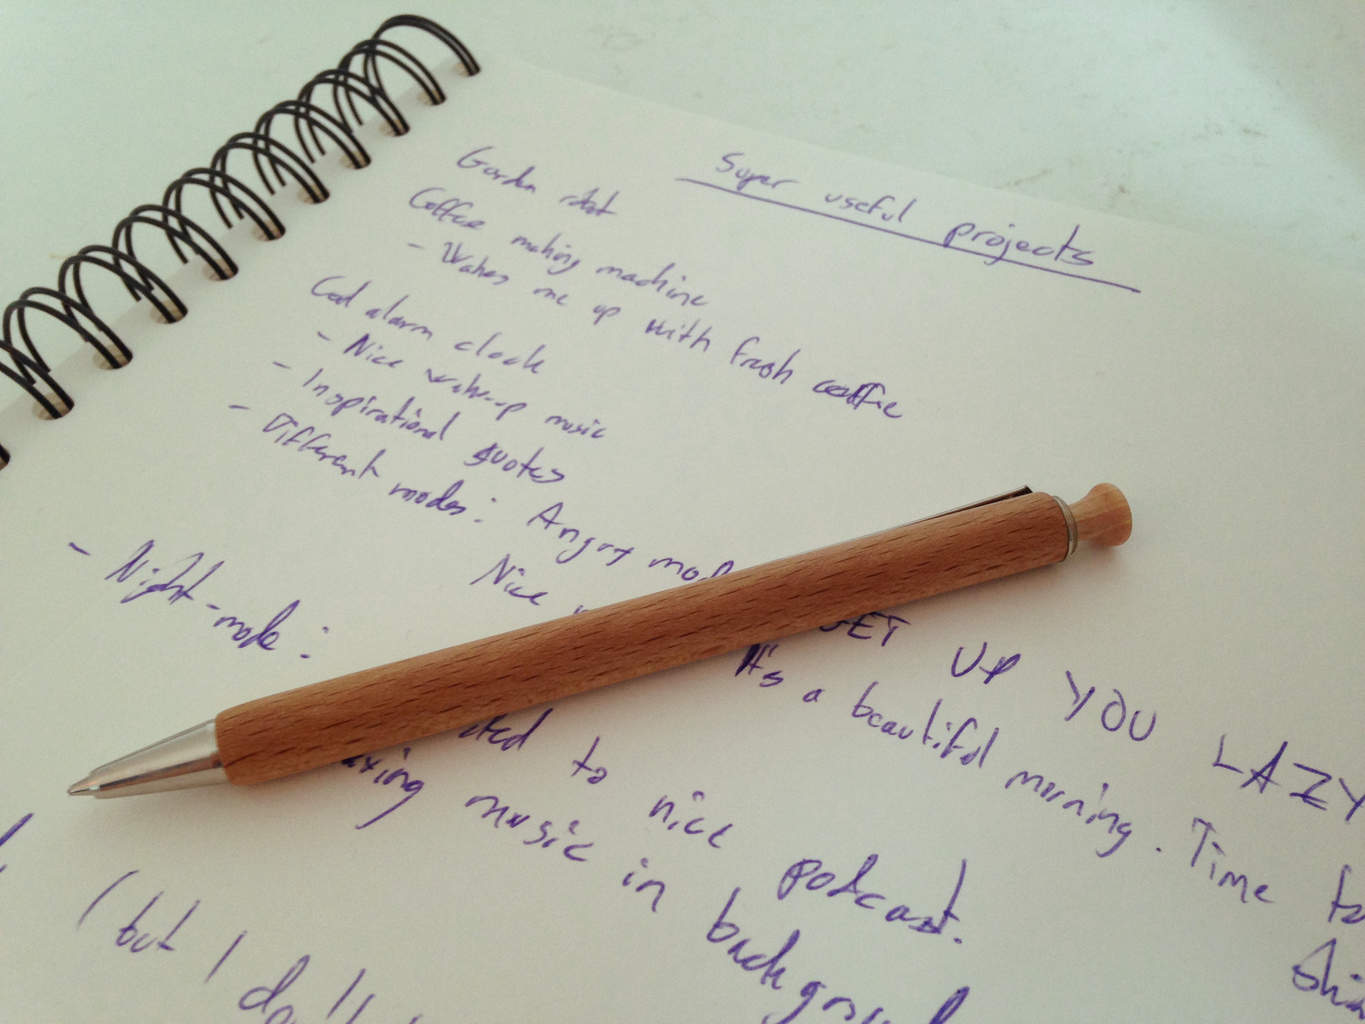 Super useful projects
Garden robot
Coffee making machine
- Wakes me up with fresh coffee
Cool alarm clock
- Nice wake-up music
- Inspirational quotes
- Different modes: Angry GET UP YOU LAZY
Nice It's a beautiful morning. Time to
- Night-mode:
to nice podcast.
music in
(but I